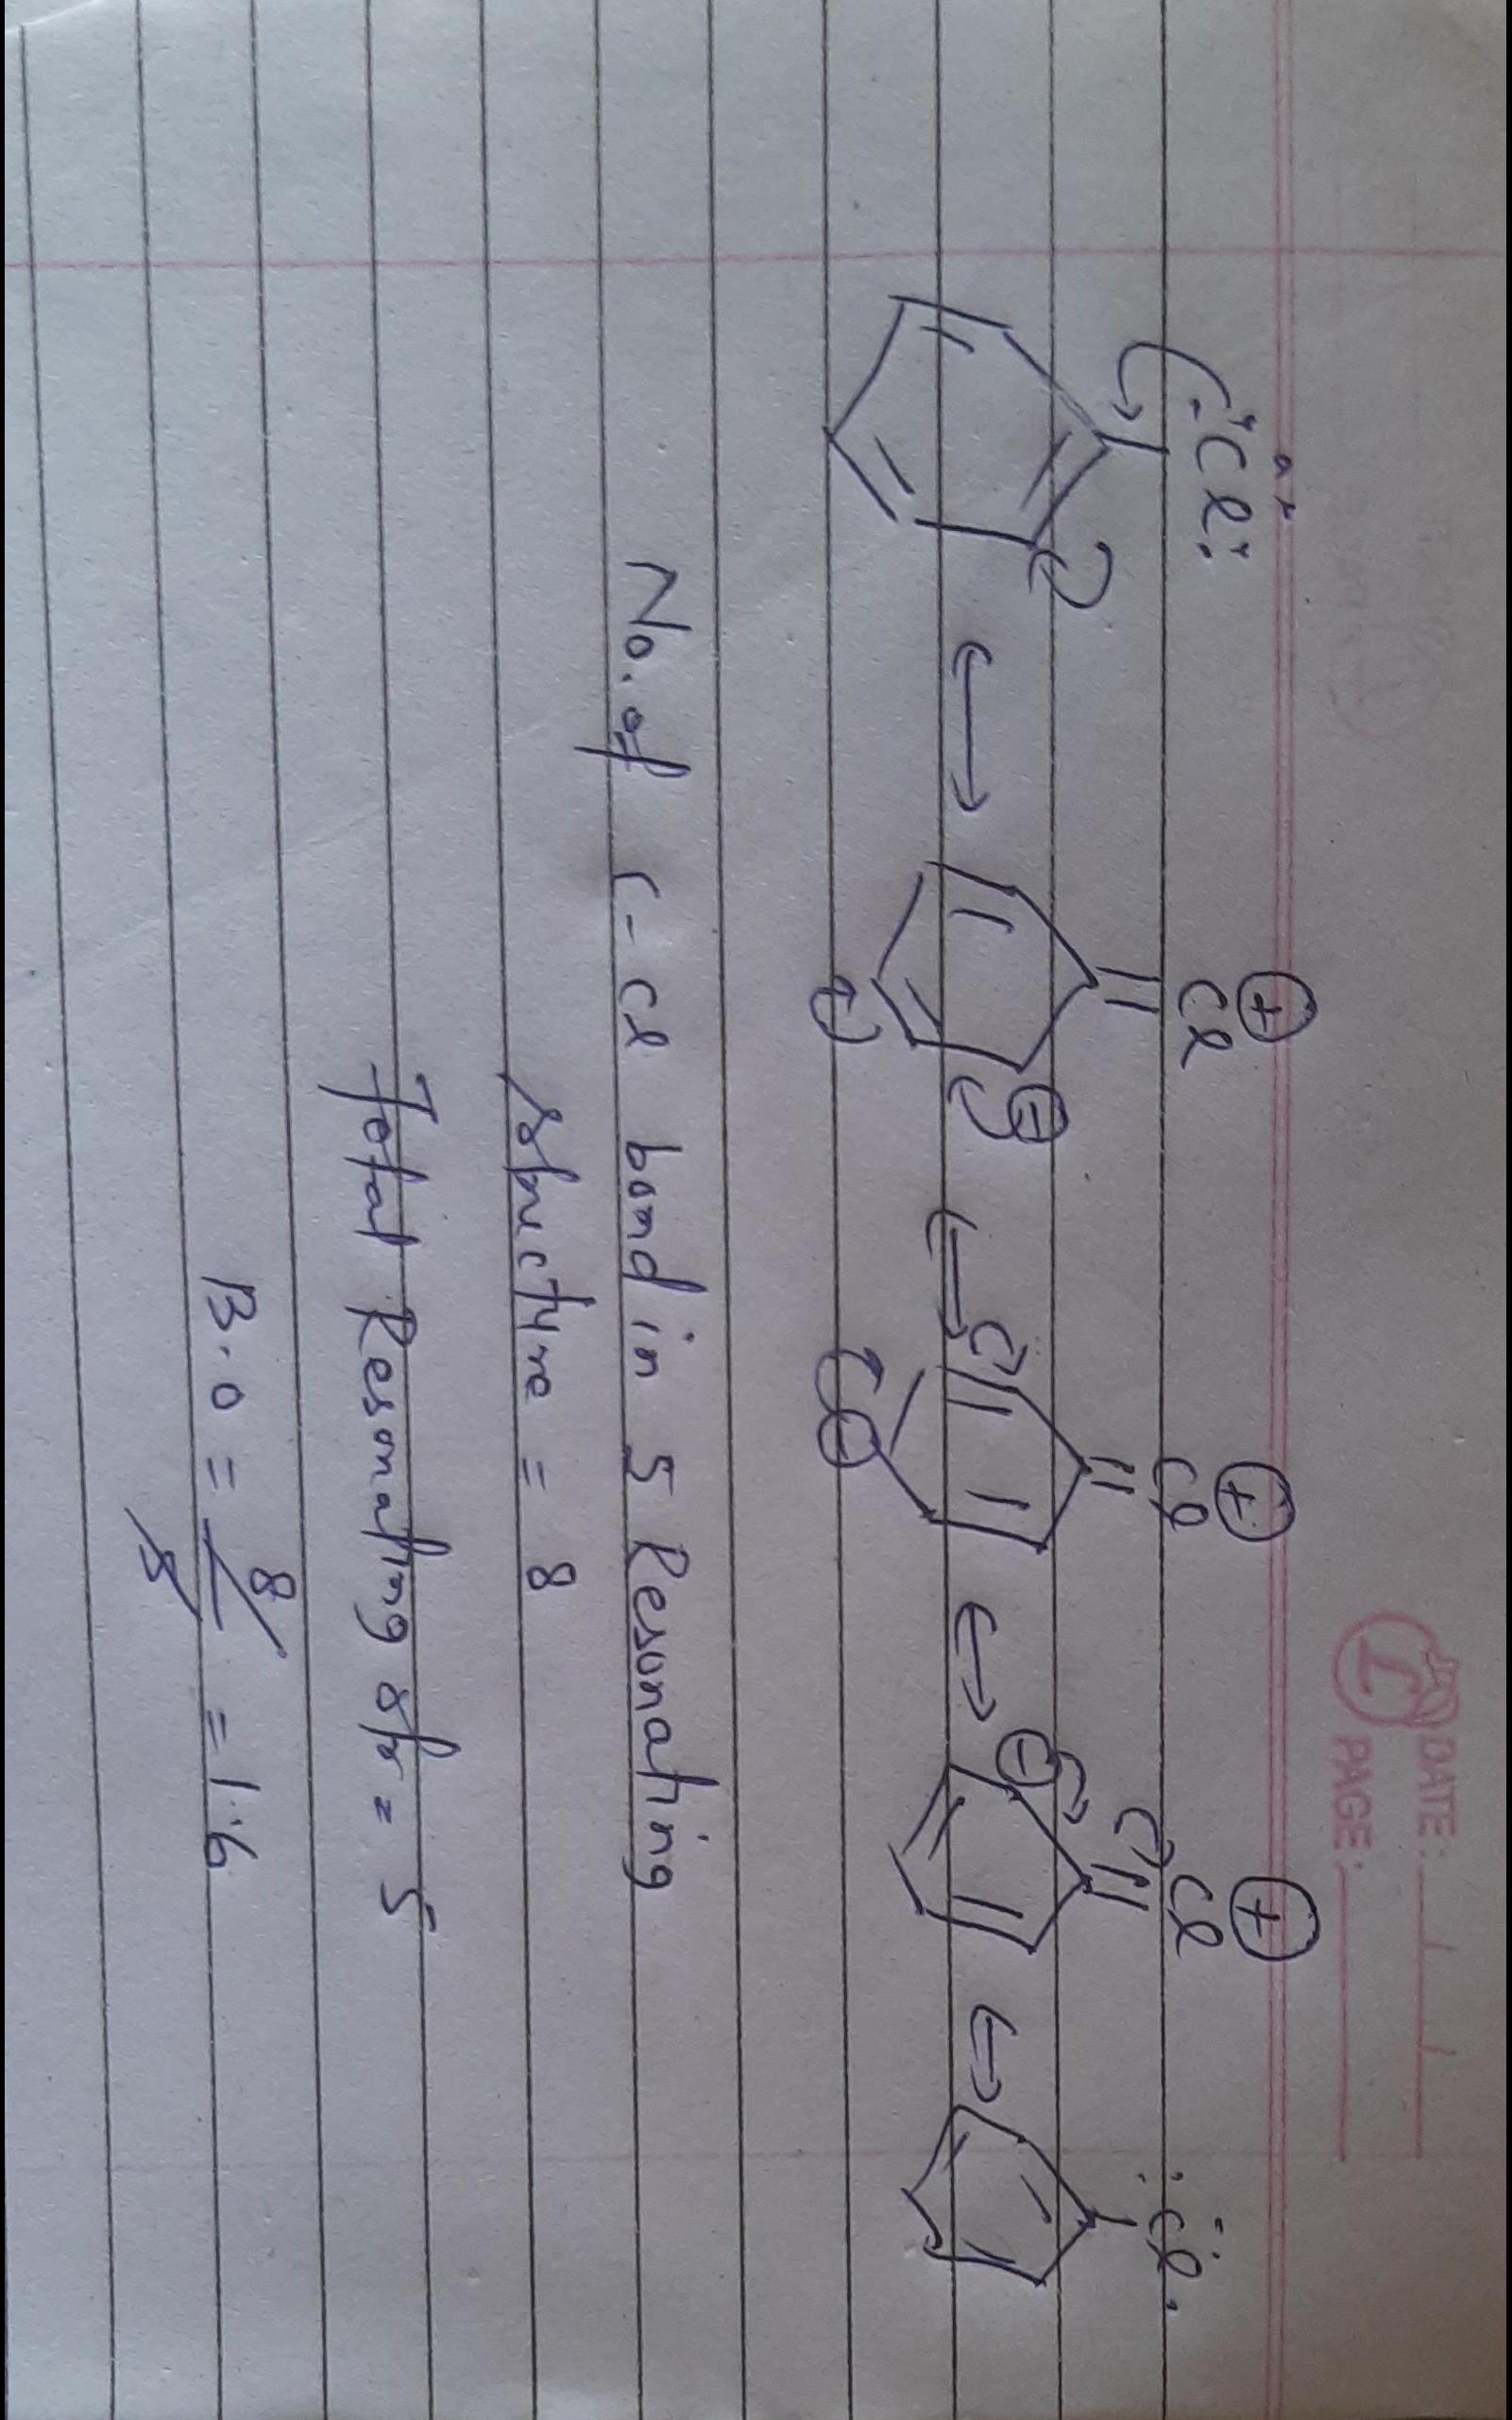 DATE:
PAGE:
:Cl: ⟷ Cl ⊕ ⊖ ⟷ Cl ⊕ ⊖ ⟷ Cl ⊕ ⊖ ⟷ :Cl:
No. of C-Cl bond in 5 Resonating
structure = 8
Total Resonating str = 5
B.O = 8/5 = 1.6